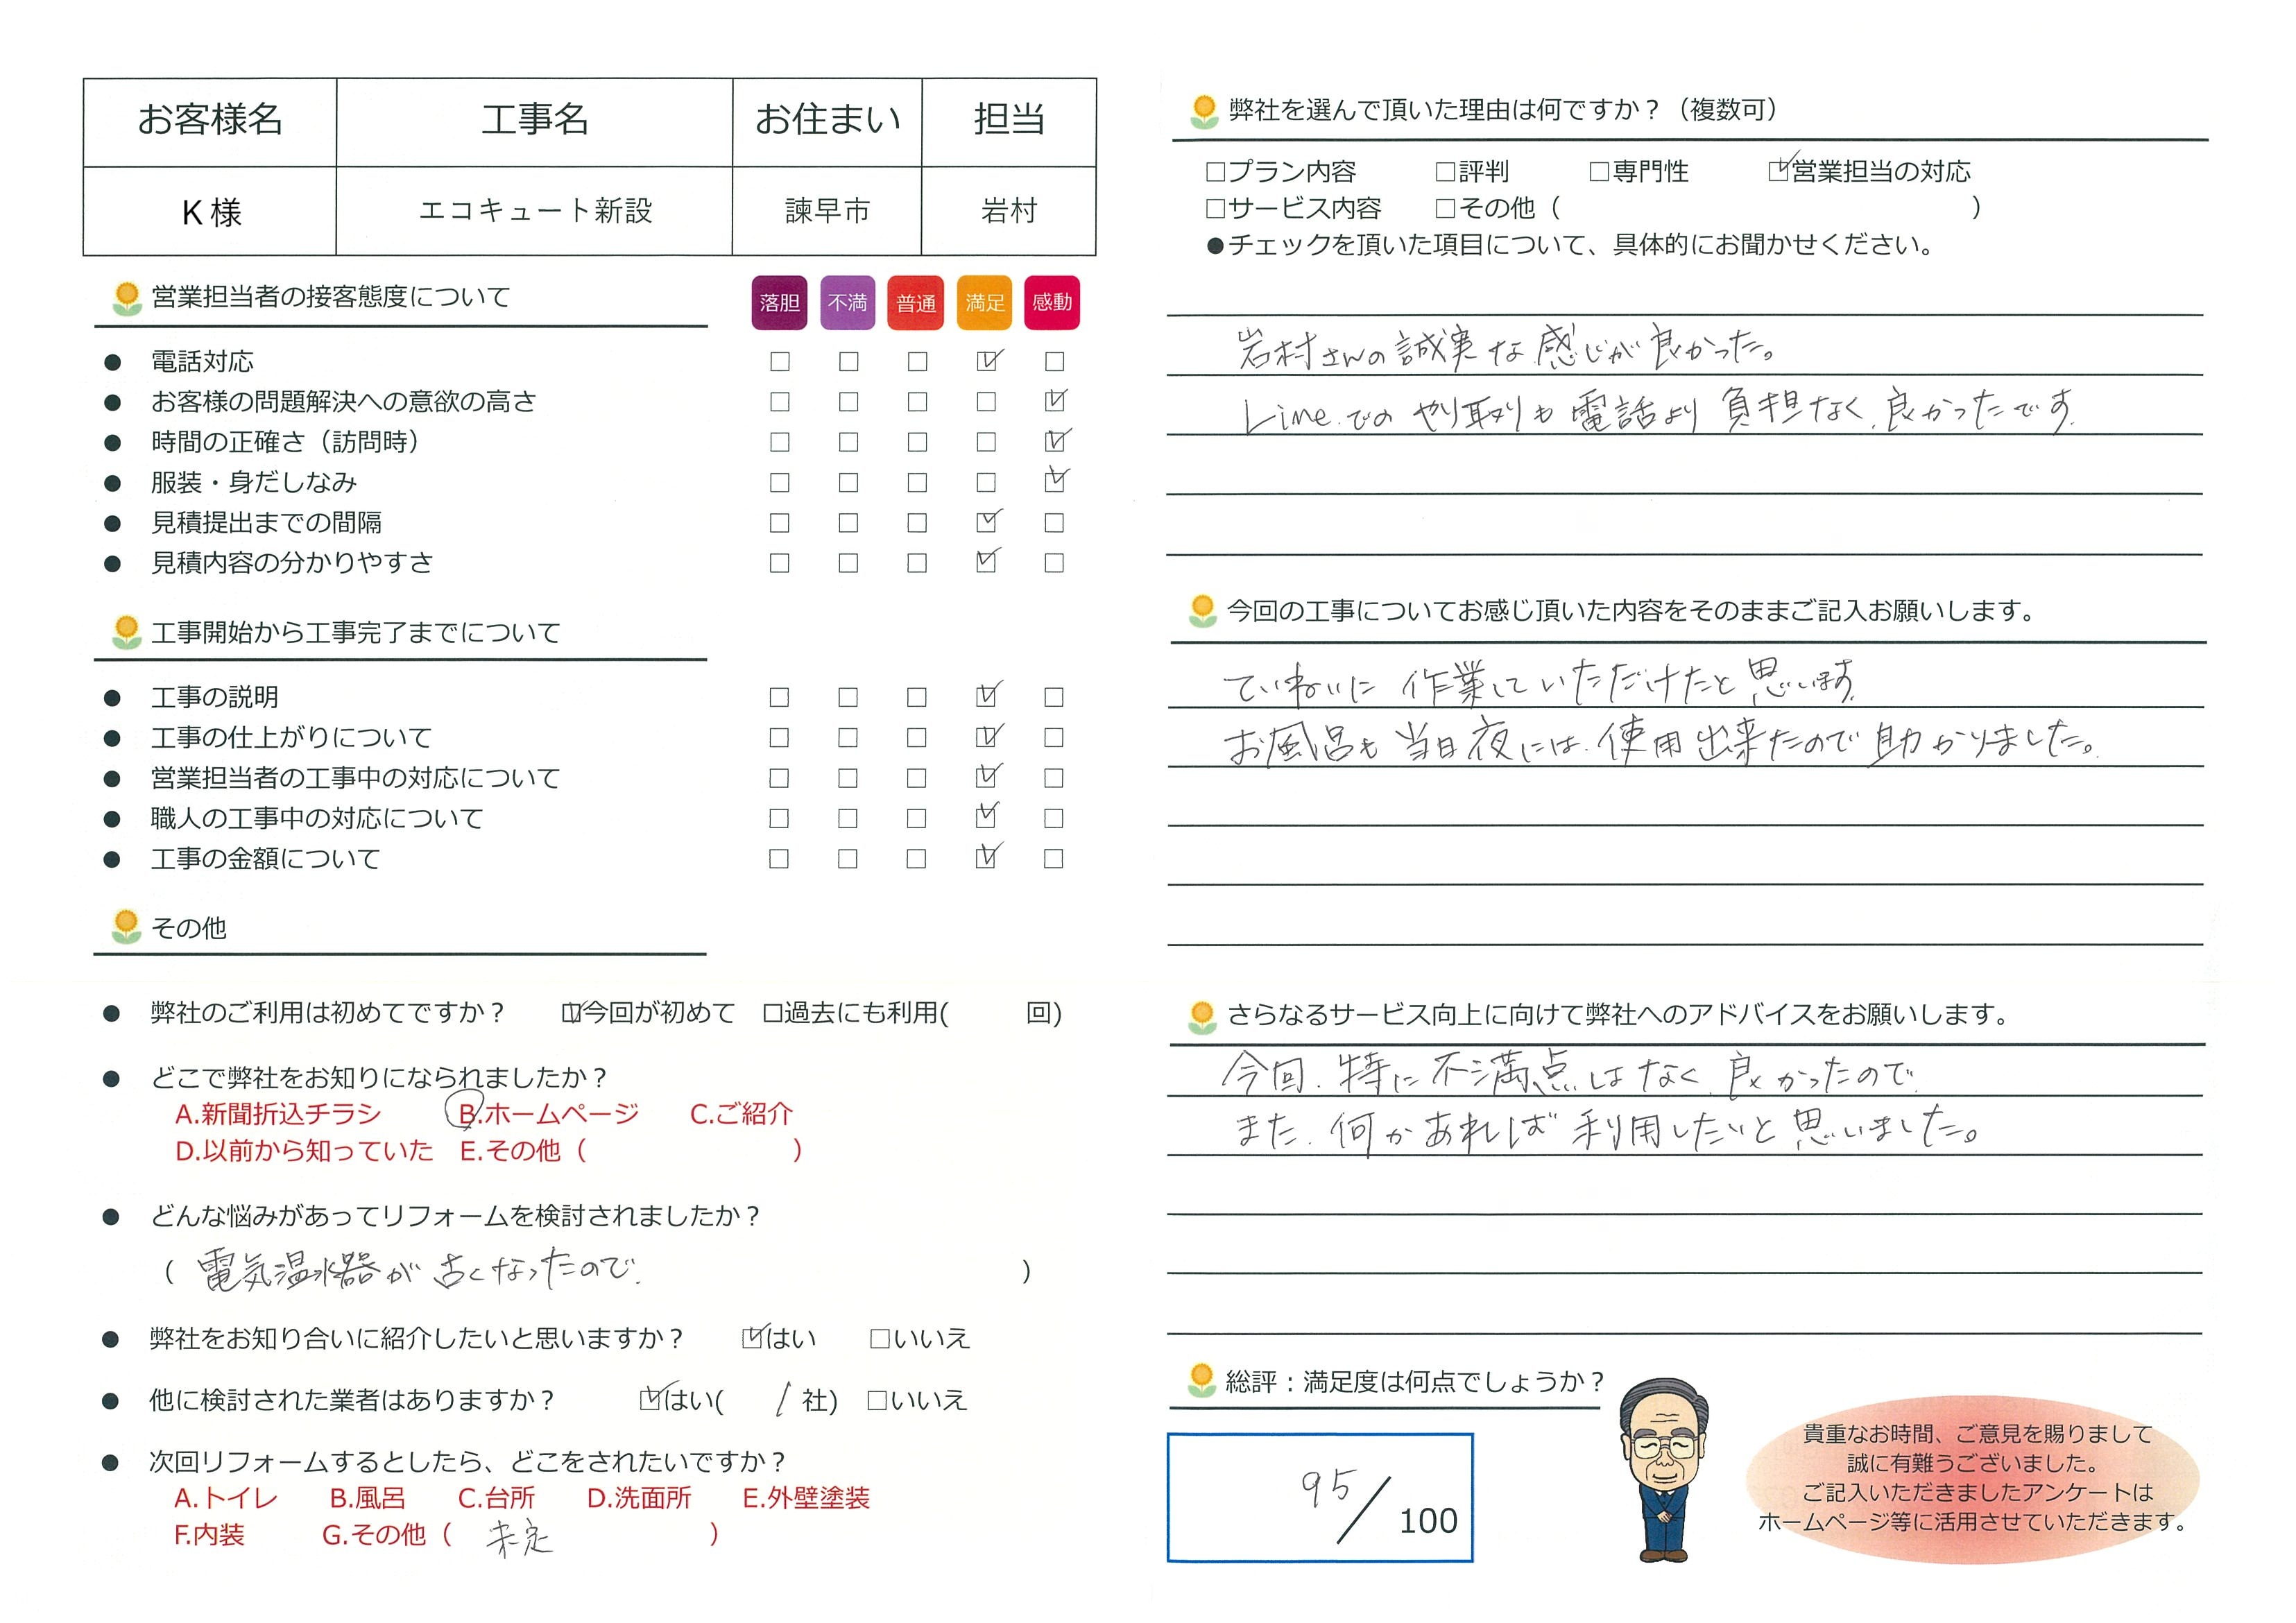 お客様名 工事名 お住まい 担当
K様 エコキュート新設 諫早市 岩村
営業担当者の接客態度について 落胆 不満 普通 満足 感動
● 電話対応 □ □ □ ☑ □
● お客様の問題解決への意欲の高さ □ □ □ □ ☑
● 時間の正確さ（訪問時） □ □ □ □ ☑
● 服装・身だしなみ □ □ □ □ ☑
● 見積提出までの間隔 □ □ □ ☑ □
● 見積内容の分かりやすさ □ □ □ ☑ □
工事開始から工事完了までについて
● 工事の説明 □ □ □ ☑ □
● 工事の仕上がりについて □ □ □ ☑ □
● 営業担当者の工事中の対応について □ □ □ ☑ □
● 職人の工事中の対応について □ □ □ ☑ □
● 工事の金額について □ □ □ ☑ □
その他
● 弊社のご利用は初めてですか？ ☑今回が初めて □過去にも利用( 回)
● どこで弊社をお知りになられましたか？
A.新聞折込チラシ B.ホームページ C.ご紹介
D.以前から知っていた E.その他（ ）
● どんな悩みがあってリフォームを検討されましたか？
（ 電気温水器が古くなったので. ）
● 弊社をお知り合いに紹介したいと思いますか？ ☑はい □いいえ
● 他に検討された業者はありますか？ ☑はい( 1 社) □いいえ
● 次回リフォームするとしたら、どこをされたいですか？
A.トイレ B.風呂 C.台所 D.洗面所 E.外壁塗装
F.内装 G.その他（ 未定 ）
弊社を選んで頂いた理由は何ですか？（複数可）
□プラン内容 □評判 □専門性 ☑営業担当の対応
□サービス内容 □その他（ ）
●チェックを頂いた項目について、具体的にお聞かせください。
岩村さんの誠実な感じが良かった。
Line.でのやり取りも電話より負担なく.良かったです.
今回の工事についてお感じ頂いた内容をそのままご記入お願いします。
ていねいに作業していただけたと思います.
お風呂も当日夜には.使用出来たので助かりました。
さらなるサービス向上に向けて弊社へのアドバイスをお願いします。
今回.特に不満点はなく.良かったので.
また.何かあれば利用したいと思いました。
総評：満足度は何点でしょうか？
95/100
貴重なお時間、ご意見を賜りまして
誠に有難うございました。
ご記入いただきましたアンケートは
ホームページ等に活用させていただきます。